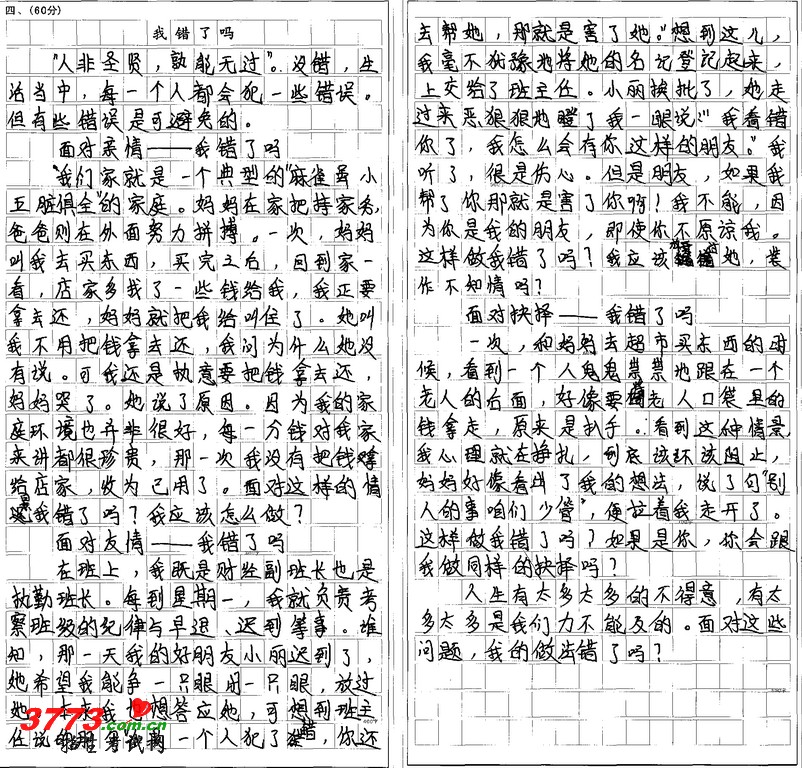 四、(60分)
我错了吗
“人非圣贤，孰能无过”。没错，生
活当中，每一个人都会犯一些错误。
但有些错误是可避免的。
面对亲情——我错了吗
“我们家就是一个典型的“麻雀虽小
五脏俱全”的家庭。妈妈在家把持家务，
爸爸则在外面努力拼搏。一次，妈妈
叫我去买东西，买完之后，回到家一
看，店家多找了一些钱给我，我正要
拿去还，妈妈就把我给叫住了。她叫
我不用把钱拿去还，我问为什么她没
有说。可我还是执意要把钱拿去还，
妈妈哭了。她说了原因。因为我的家
庭环境也并非很好，每一分钱对我家
来讲都很珍贵，那一次我没有把钱
给店家，收为己用了。面对这样的情
我错了吗？我应该怎么做？
面对友情——我错了吗
在班上，我既是财经副班长也是
执勤班长。每到星期一，我就负责考
察班级的纪律与早退、迟到等事。谁
知，那一天我的好朋友小丽迟到了，
她希望我能争一只眼闭一只眼，放过
她 我 想答应她，可想到班主
3773.com.cn
任说的 一个人犯了错，你还
去帮她，那就是害了她。”想到这儿，
我毫不犹豫地将她的名记登记起来，
上交给了班主任。小丽挨批了，她走
过来恶狠狠地瞪了我一眼说：“我看错
你了，我怎么会存你这样的朋友。”我
听了，很是伤心。但是朋友，如果我
帮了你那就是害了你啊！我不能，因
为你是我的朋友，即使你不原谅我。
这样做我错了吗？我应该 她，装
作不知情吗？
面对抉择——我错了吗
一次，和妈妈去超市买东西的时
候，看到一个人鬼鬼祟祟地跟在一个
老人的后面，好像要 老人口袋里的
钱拿走，原来是扒手。看到这种情景，
我心理就在挣扎，到底该不该阻止，
妈妈好像看出了我的想法，说了句“别
人的事咱们少管”，便拉着我走开了。
这样做我错了吗？如果是你，你会跟
我做同样的抉择吗？
人生有太多太多的不得意，有太
多太多是我们力不能及的。面对这些
问题，我的做法错了吗？